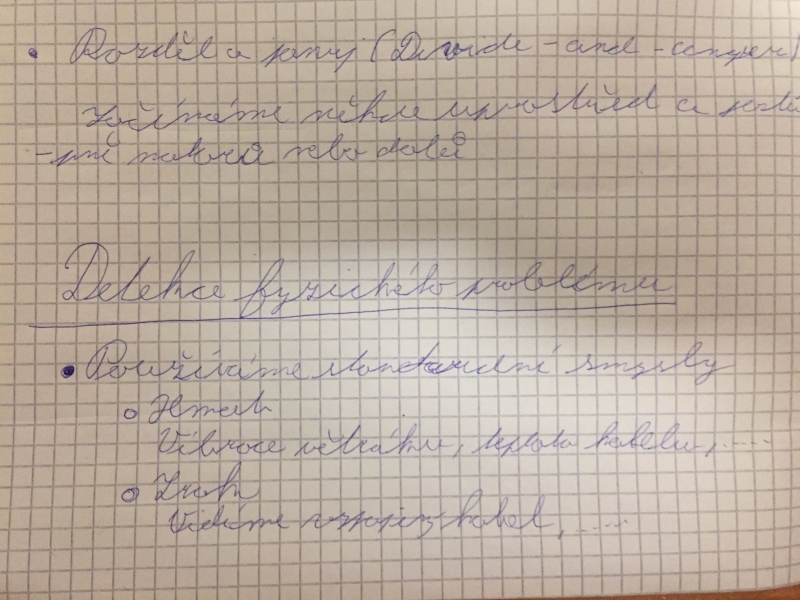 • Rozděl a panuj (Divide-and-conquer)
Začínáme někde uprostřed a postu
-pně nahoru nebo dolů
Detekce fyzického problému
• Používáme standardní smysly
○ Hmat
Vibrace větráku, teplota kabelu, .....
○ Zrak
Vidíme rozpojený kabel, .....